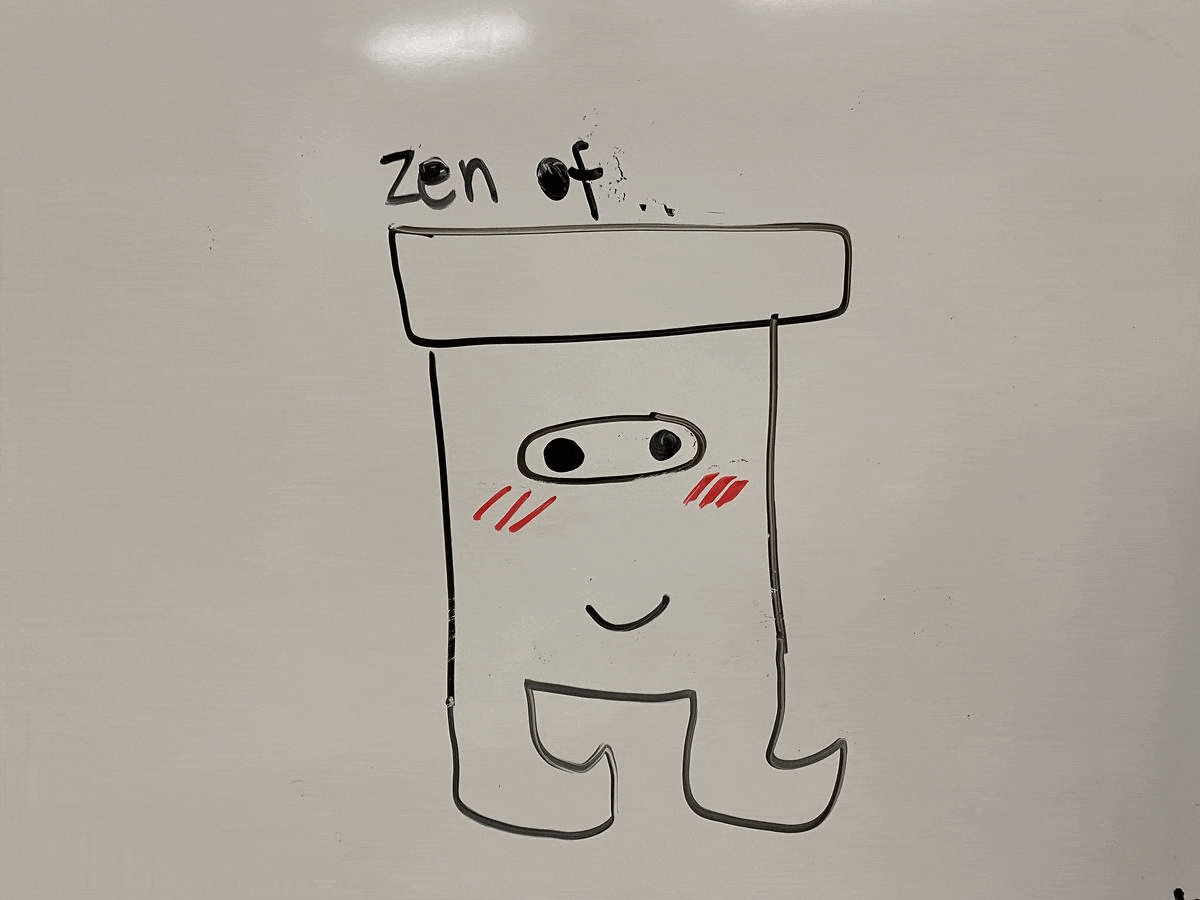 zen of ...